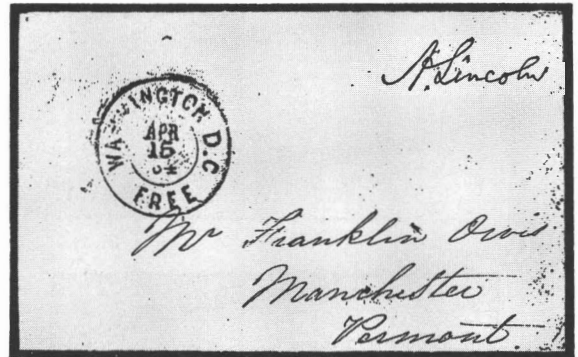 A. Lincoln
WASHINGTON D.C
APR
15
FREE
Mr Franklin Orvis
Manchester
Vermont.